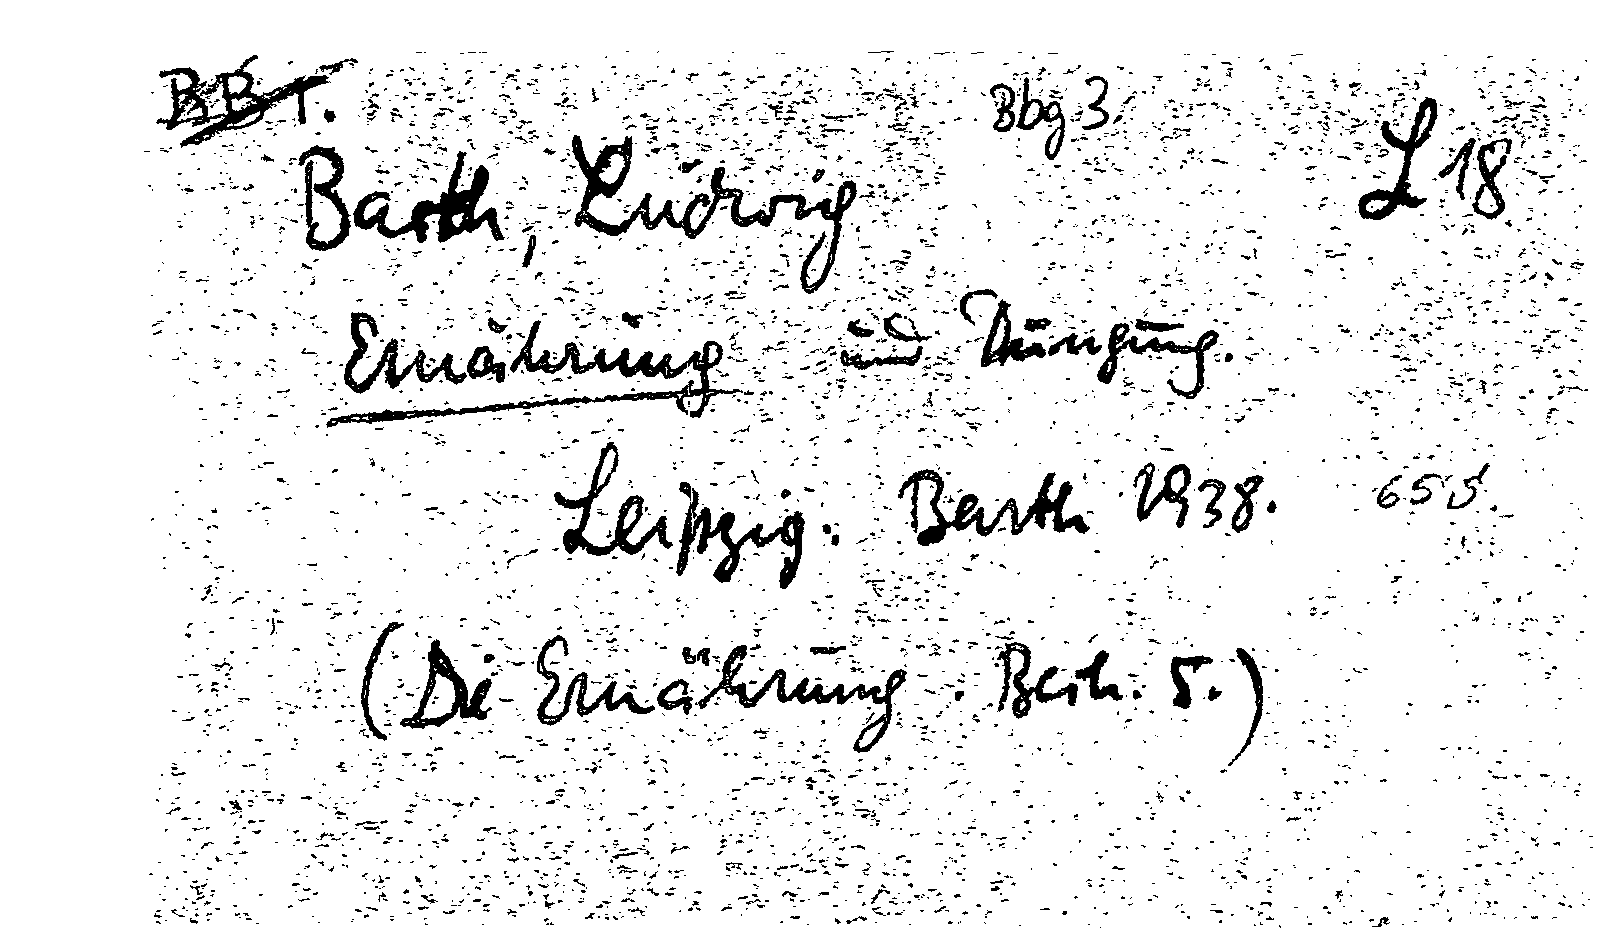 BB 1. Bbg 3. L 18
Barth, Ludwig
Ernährung und Düngung.
Leipzig: Barth 1938. 65 S.
(Die Ernährung. Beih. 5.)